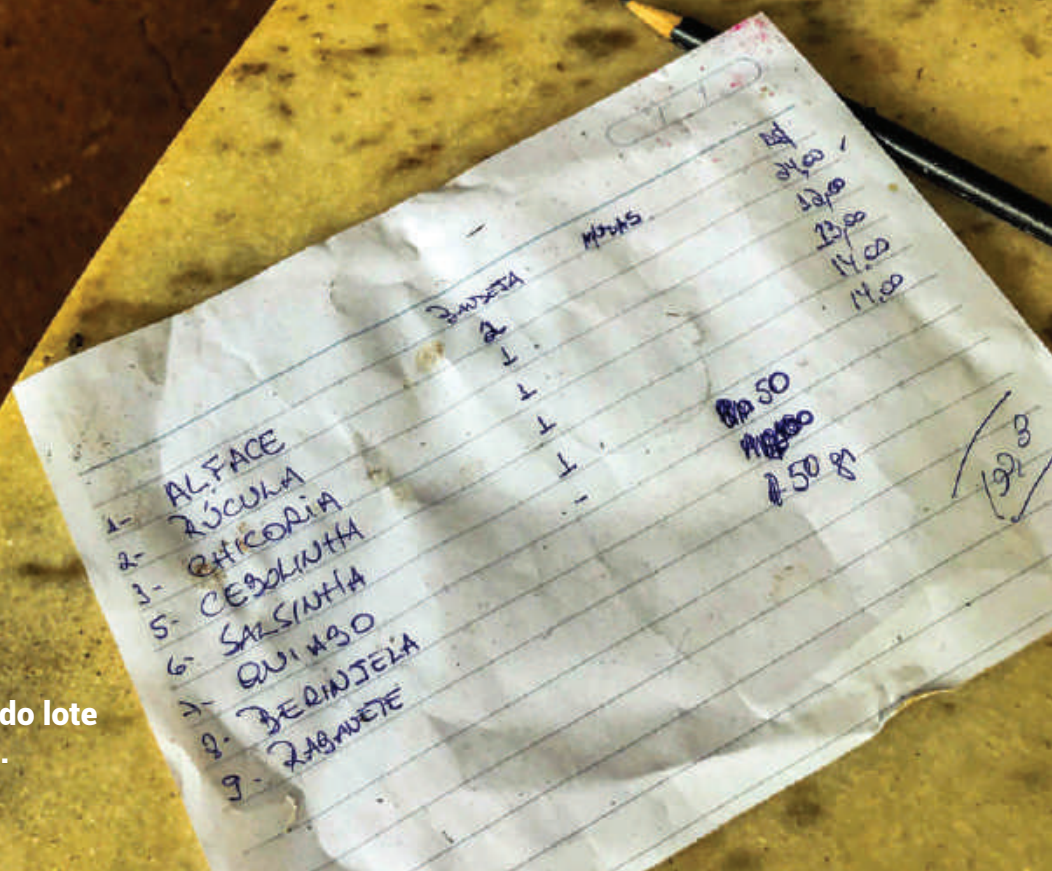 BANDEJA
1- ALFACE 2 24,00
2- RÚCULA 1 12,00
3- CHICORIA 1 13,00
5- CEBOLINHA 1 14,00
6- SALSINHA 1 14,00
7- QUIABO -
8- BERINJELA
9- RABANETE
50
1.50 gr
do lote
.